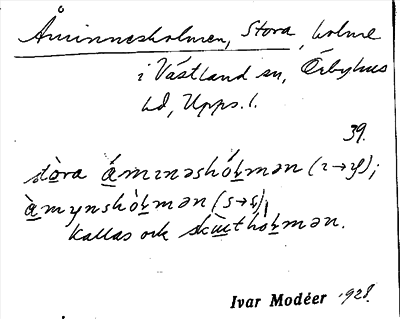 Åminnesholmen, Stora, holme
i Västland sn, Örbyhus
hd, Upps. l.
39.
stòra ám​ınəshól̠mən (ı→y);
àmynshòl̠mən (s→ş),
Kallas ock skùəthól̠mən.
Ivar Modéer 1928.